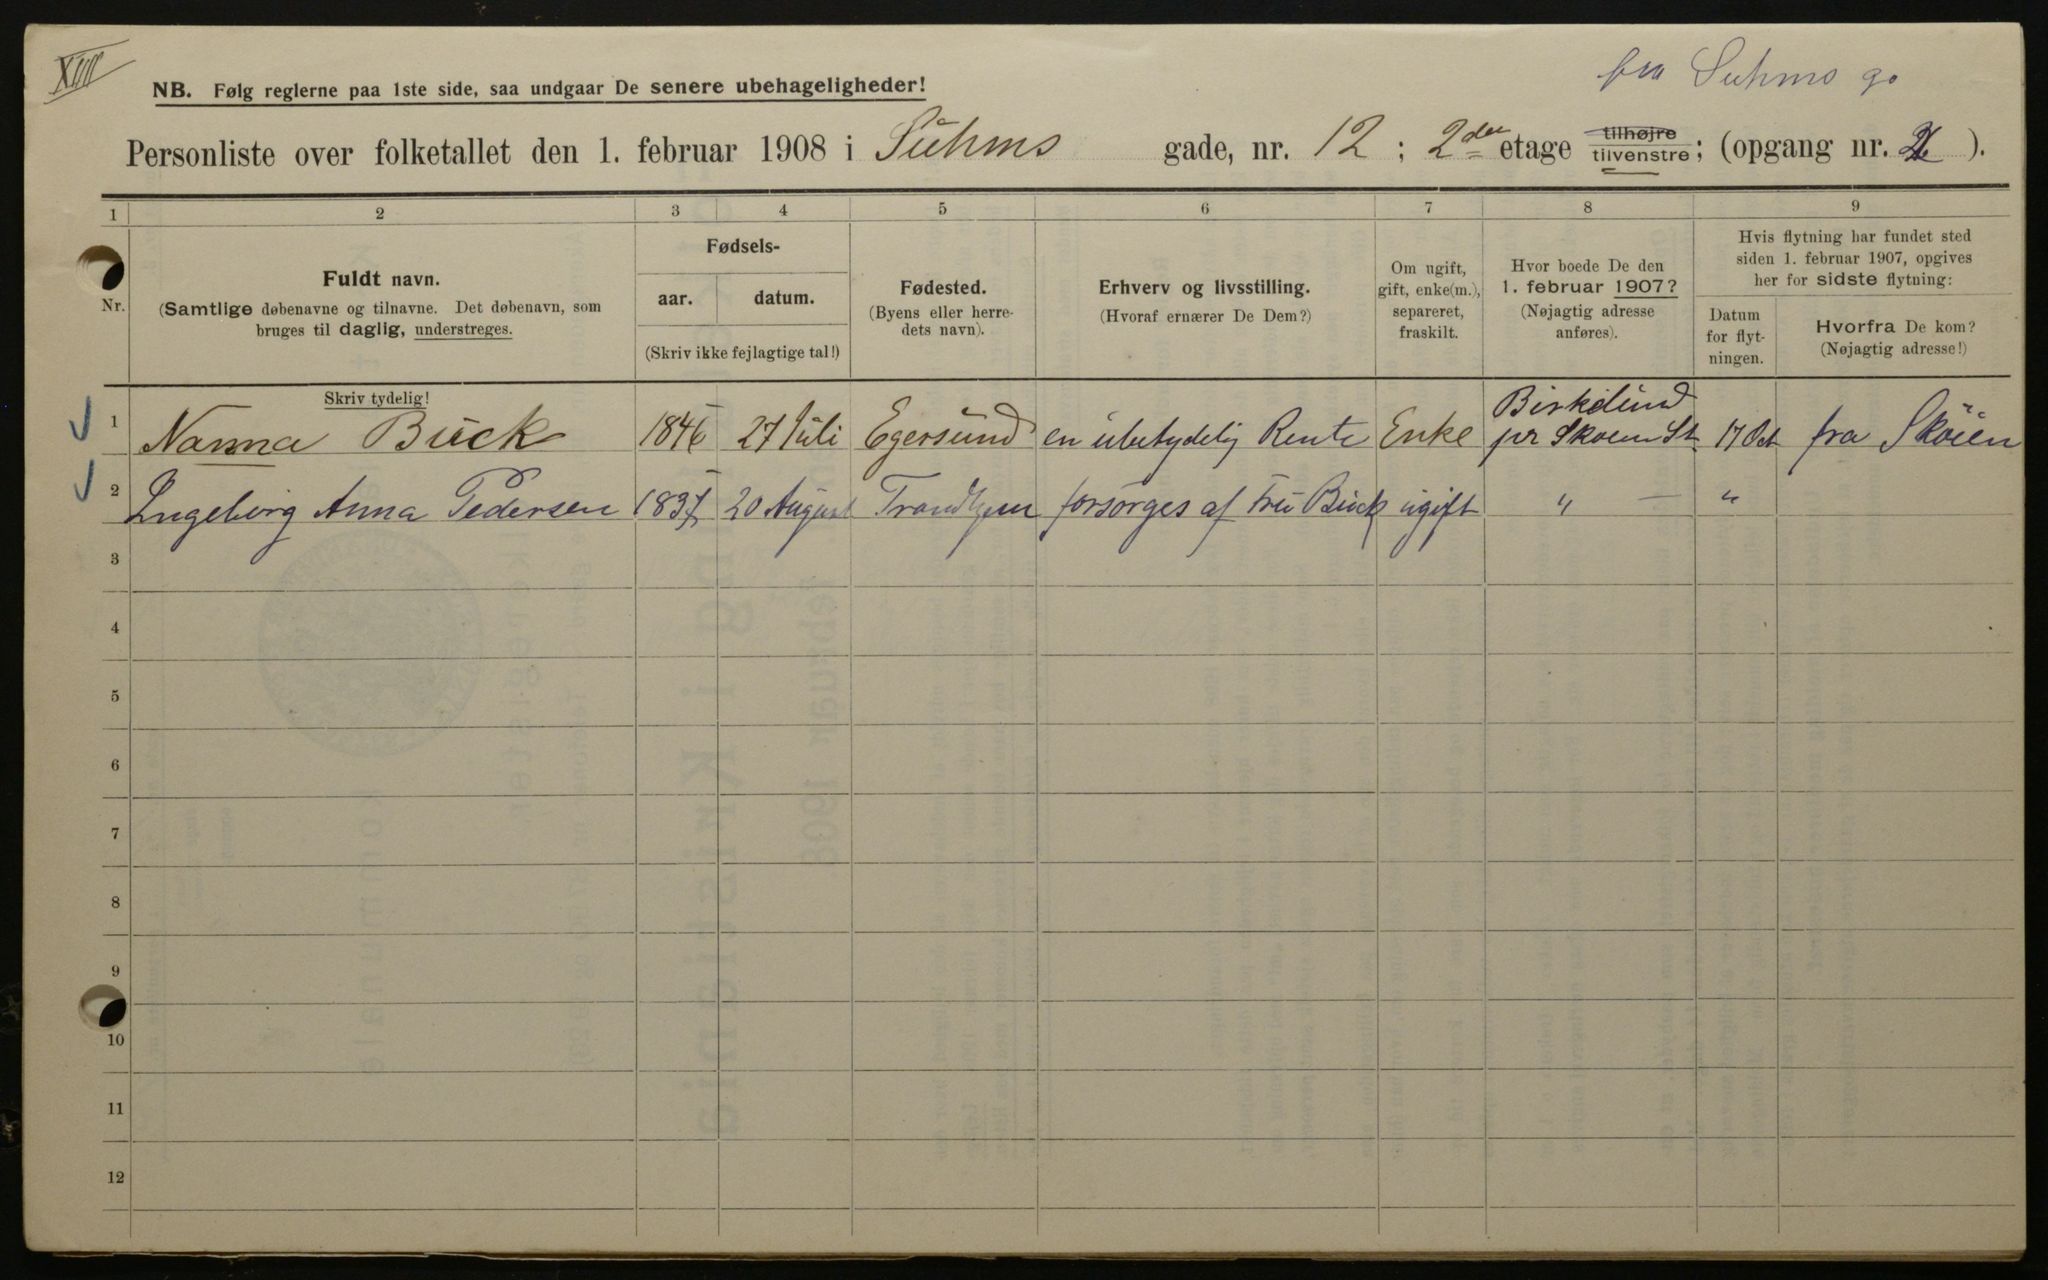 XIII
fra Suhms g.
NB. Følg reglerne paa 1ste side, saa undgaar De senere ubehageligheder!
Personliste over folketallet den 1. februar 1908 i Suhms gade, nr. 12 ; 2den etage tilhøjre tilvenstre; (opgang nr. ).
1 2 3 4 5 6 7 8 9
Nr.
Fuldt navn.
(Samtlige døbenavne og tilnavne. Det døbenavn, som
bruges til daglig, understreges.
Skriv tydelig!
Fødsels-
aar. datum.
(Skriv ikke fejlagtige tal!)
Fødested.
(Byens eller herre-
dets navn).
Erhverv og livsstilling.
(Hvoraf ernærer De Dem?)
Om ugift,
gift, enke(m.),
separeret,
fraskilt.
Hvor boede De den
1. februar 1907?
(Nøjagtig adresse
anføres).
Hvis flytning har fundet sted
siden 1. februar 1907, opgives
her for sidste flytning:
Datum
for flyt-
ningen.
Hvorfra De kom?
(Nøjagtig adresse!)
1 Nanna Buck 1846 27 Juli Egersund en ubetydelig Rente Enke Birkelund pr Skoien St 17 Oct fra Skøien
2 Ingeborg Anna Pedersen 1837 20 August Trondhjem forsørges af Fru Buck ugift " — "
3
4
5
6
7
8
9
10
11
12